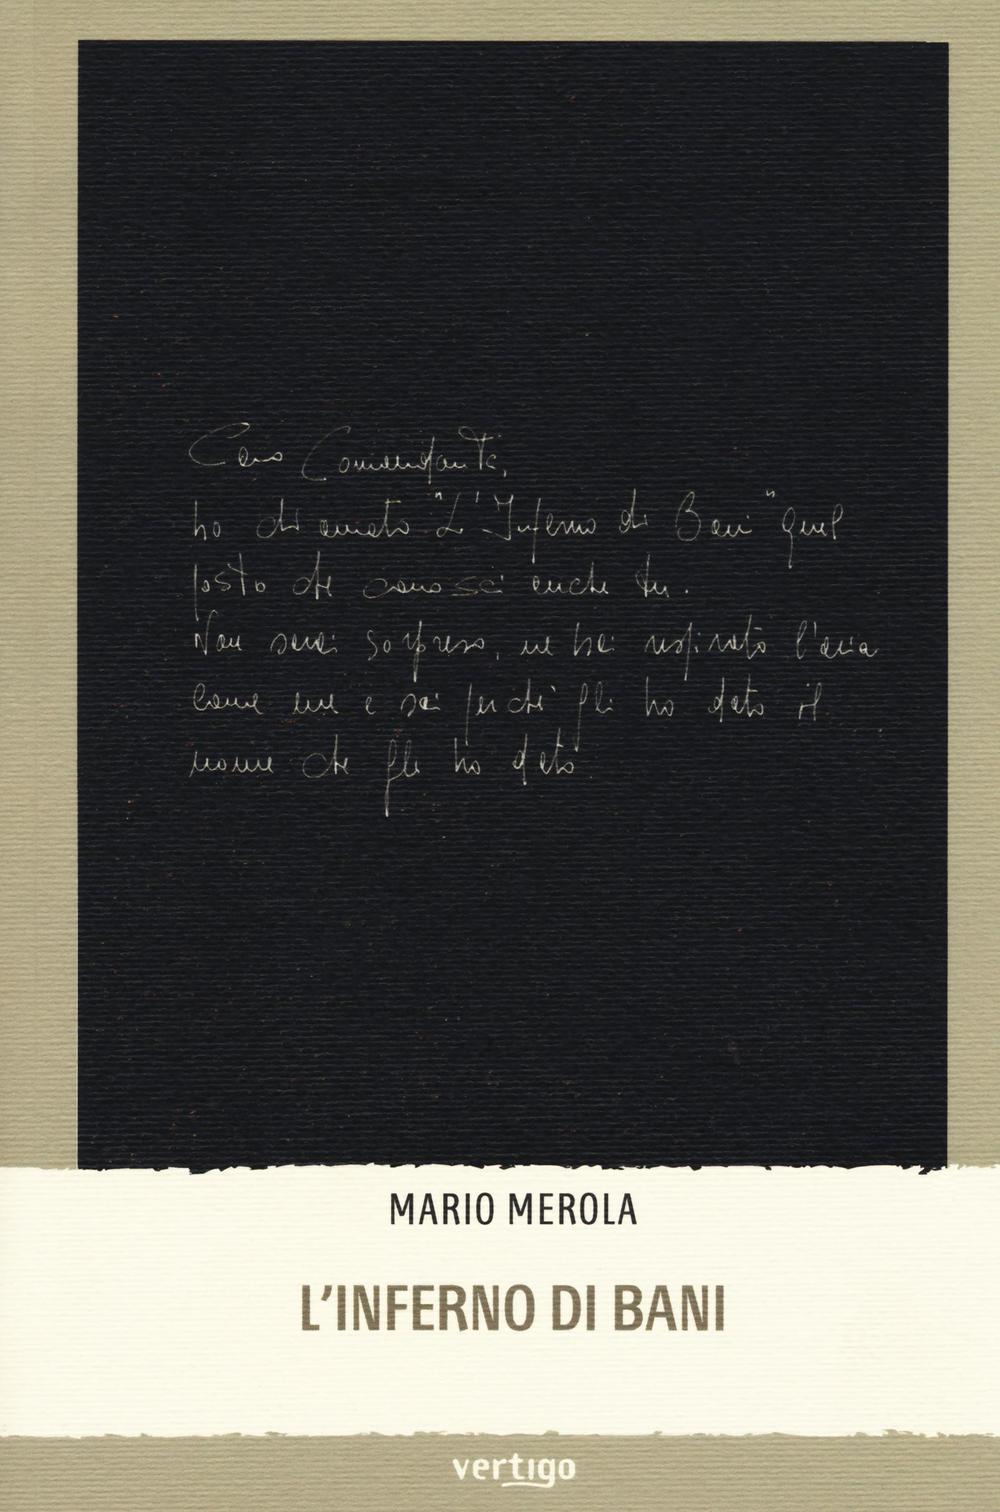 Caro Comandante,
ho chiamato "L'Inferno di Bani" quel
posto che conosci anche tu.
Non sarai sorpreso, ne hai respirato l'aria
come me e sai perché gli ho dato il
nome che gli ho dato
MARIO MEROLA
L'INFERNO DI BANI
vertigo